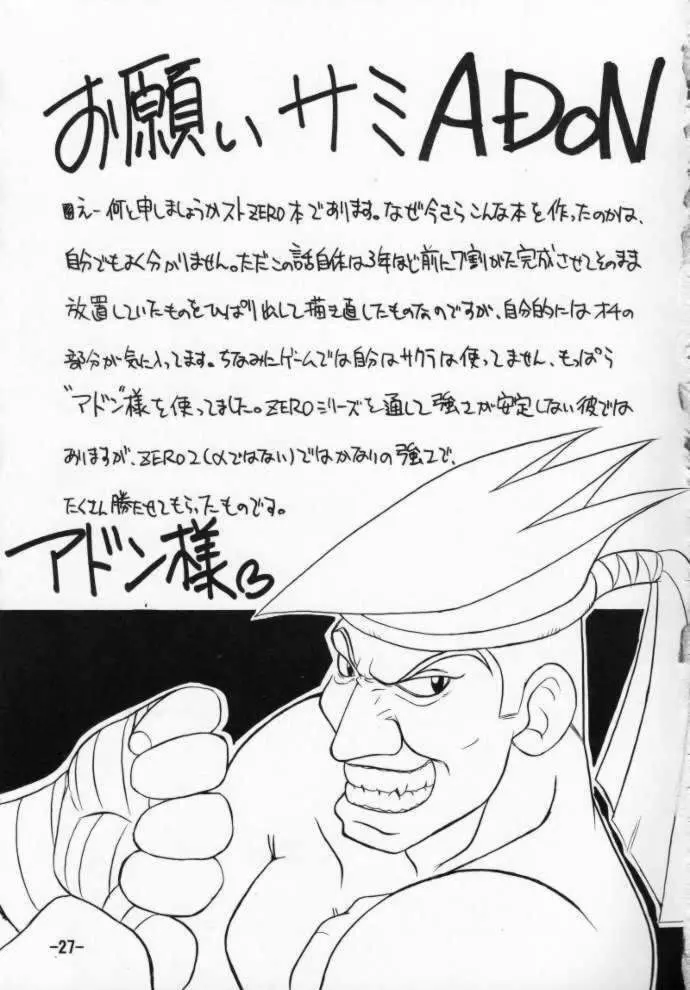 お願いサミADON
え一何と申しましょうかストZERO本であります。なぜ今さらこんな本を作ったのかは、
自分でもよく分かりません。ただこの話自体は3年ほど前に7割がた完成させてそのまま
放置していたものをひっぱり出して描き直したものなのですが、自分的にはオチの
部分が気に入ってます。ちなみにゲームでは自分はサクラは使ってません、もっぱら
"アドン"様を使ってました。ZEROシリーズを通して強さが安定しない彼では
ありますが、ZERO2(αではない)ではかなりの強さで、
たくさん勝たせてもらったものです。
アドン様
-27-